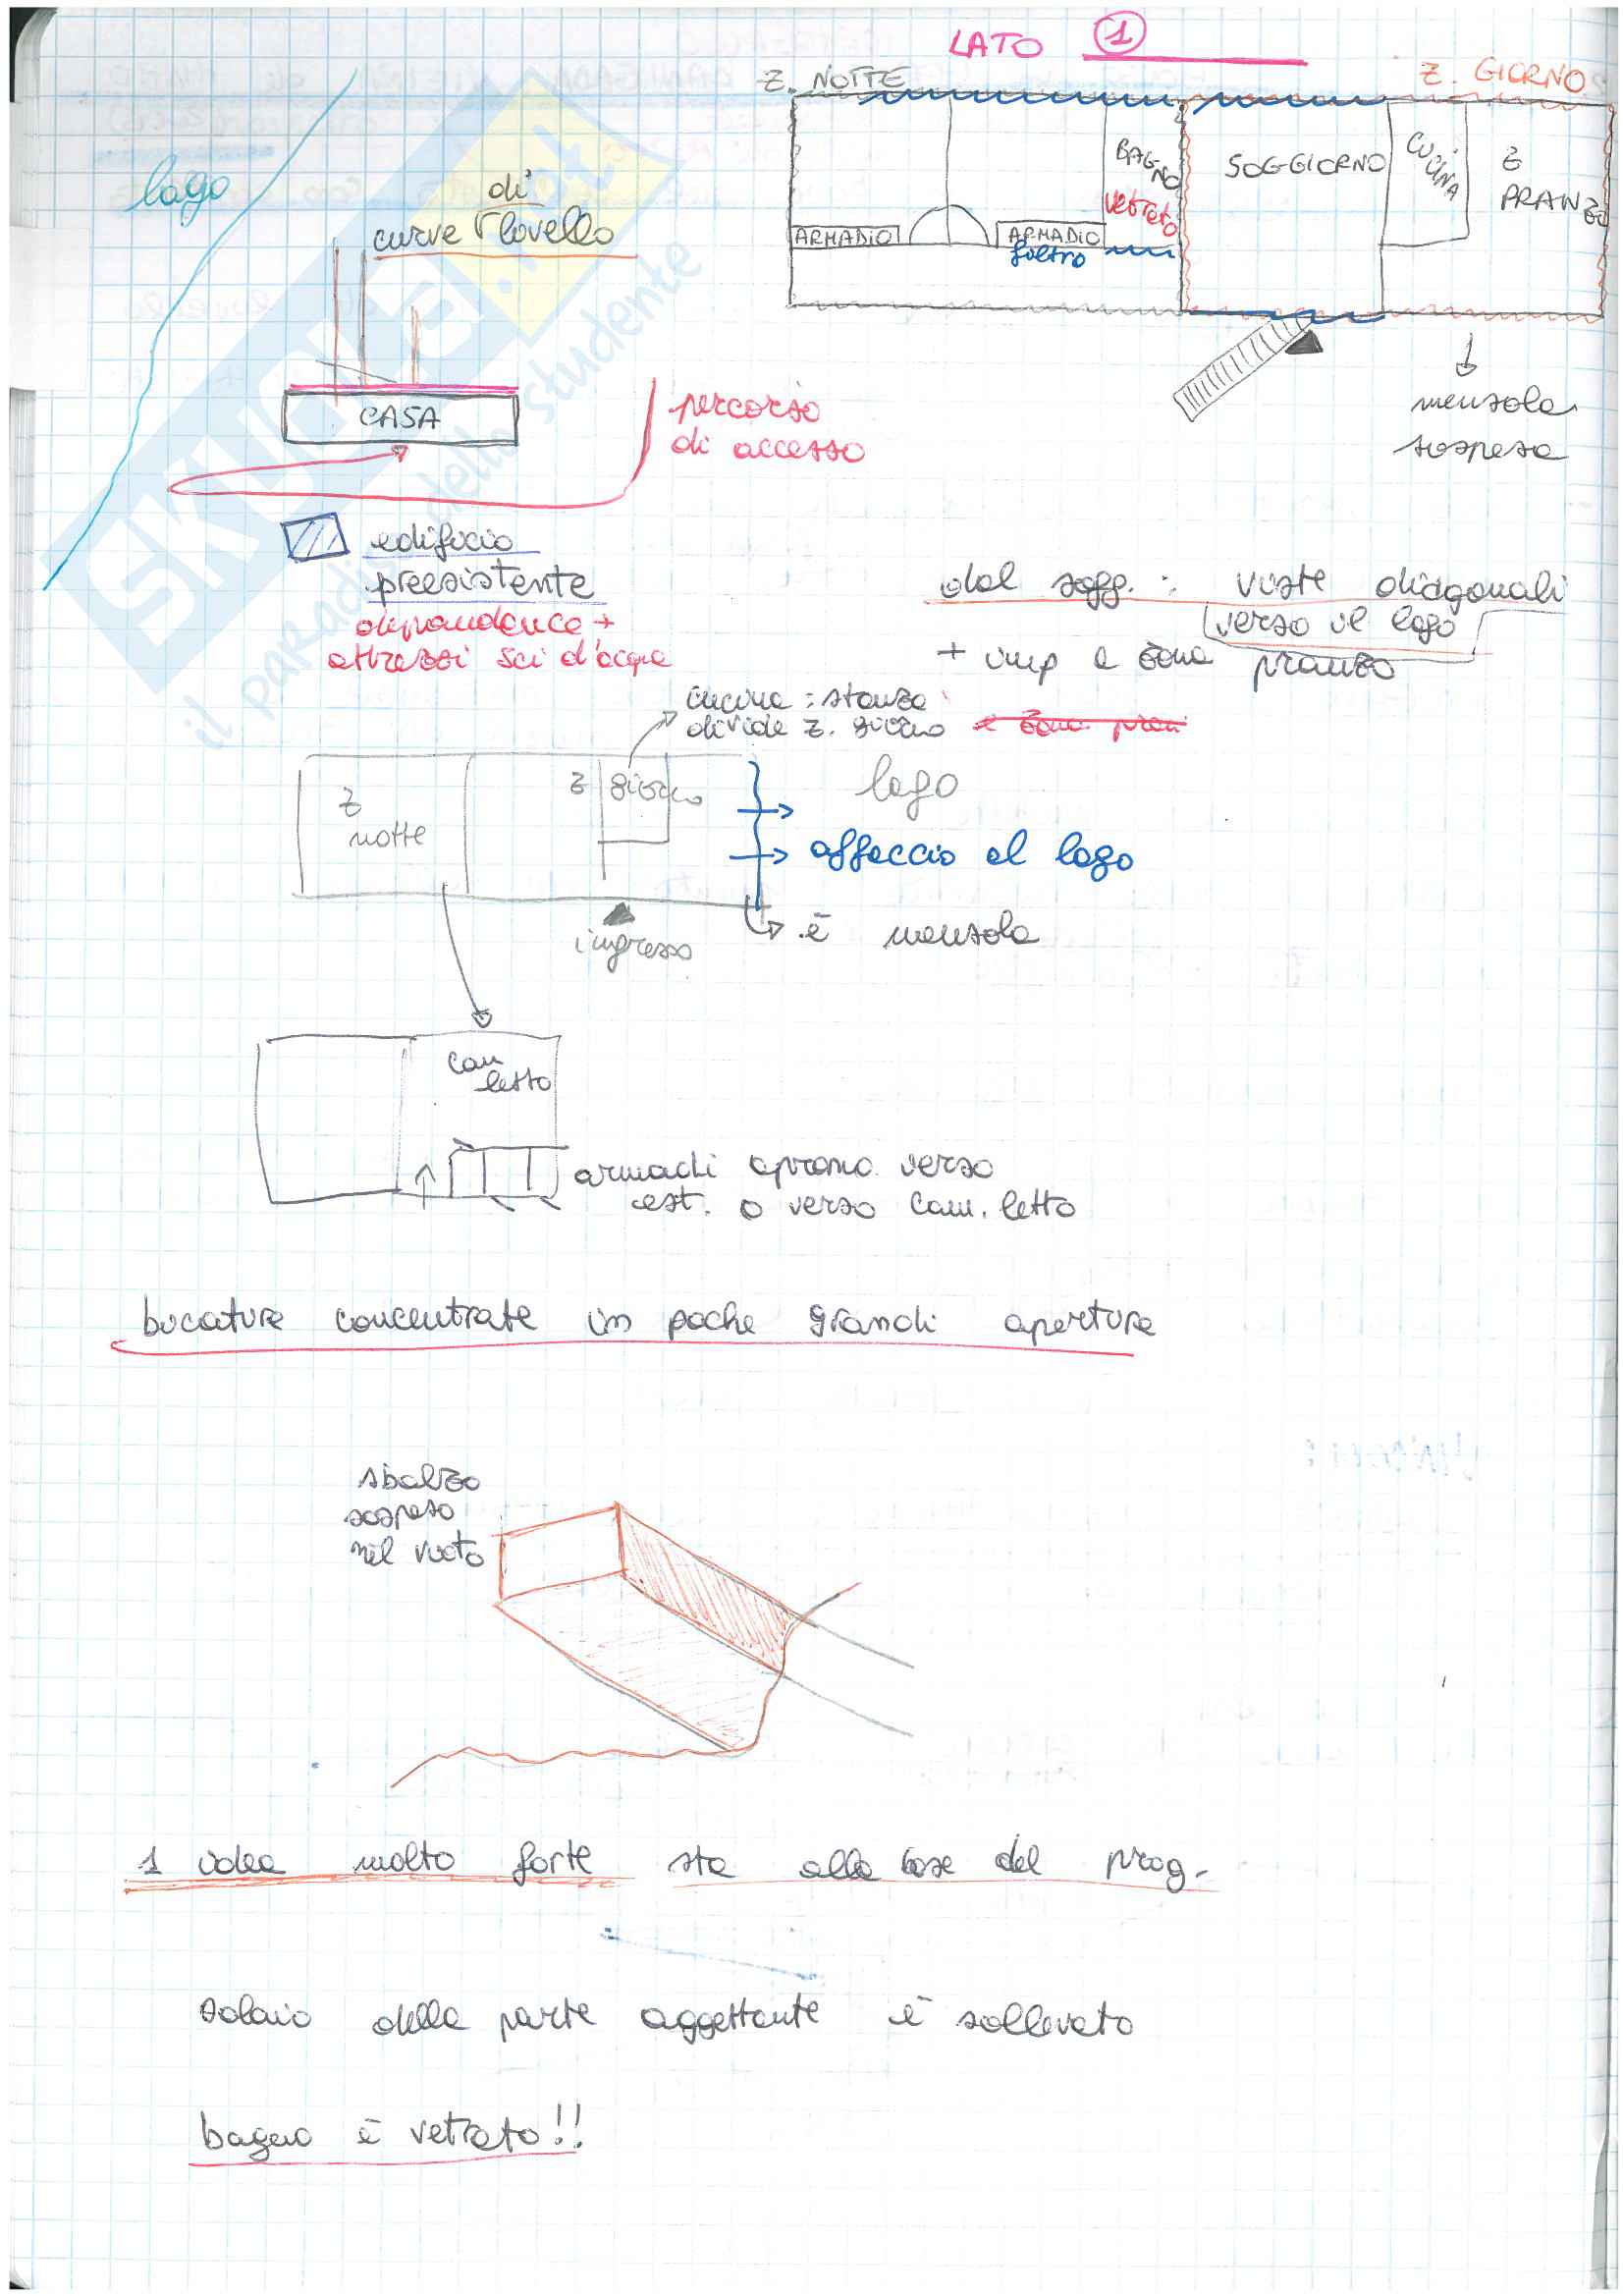 LATO 1
Z. NOTTE
Z. GIORNO
lago
di
curve livello
BAGNO
vetrato
SOGGIORNO
CUCINA
Z
PRANZO
ARMADIO
ARMADIO
filtro
mensola
sospesa
CASA
percorso
di accesso
edificio
preesistente
dipendence +
attrezzi sci d'acqua
SKUOLA.net
il paradiso dello studente
dal sogg. : viste diagonali
verso il lago
+ imp è zona pranzo
cucina : stanza
divide z. giorno e zona pran
z
notte
z giorno
lago
affaccio al lago
è mensola
ingresso
cam
letto
armadi aprono verso
est. o verso cam. letto
bucature concentrate in poche grandi aperture
sbalzo
sospeso
nel vuoto
1 idea molto forte sta alla base del prog.
solaio della parte aggettante è sollevato
bagno è vetrato!!